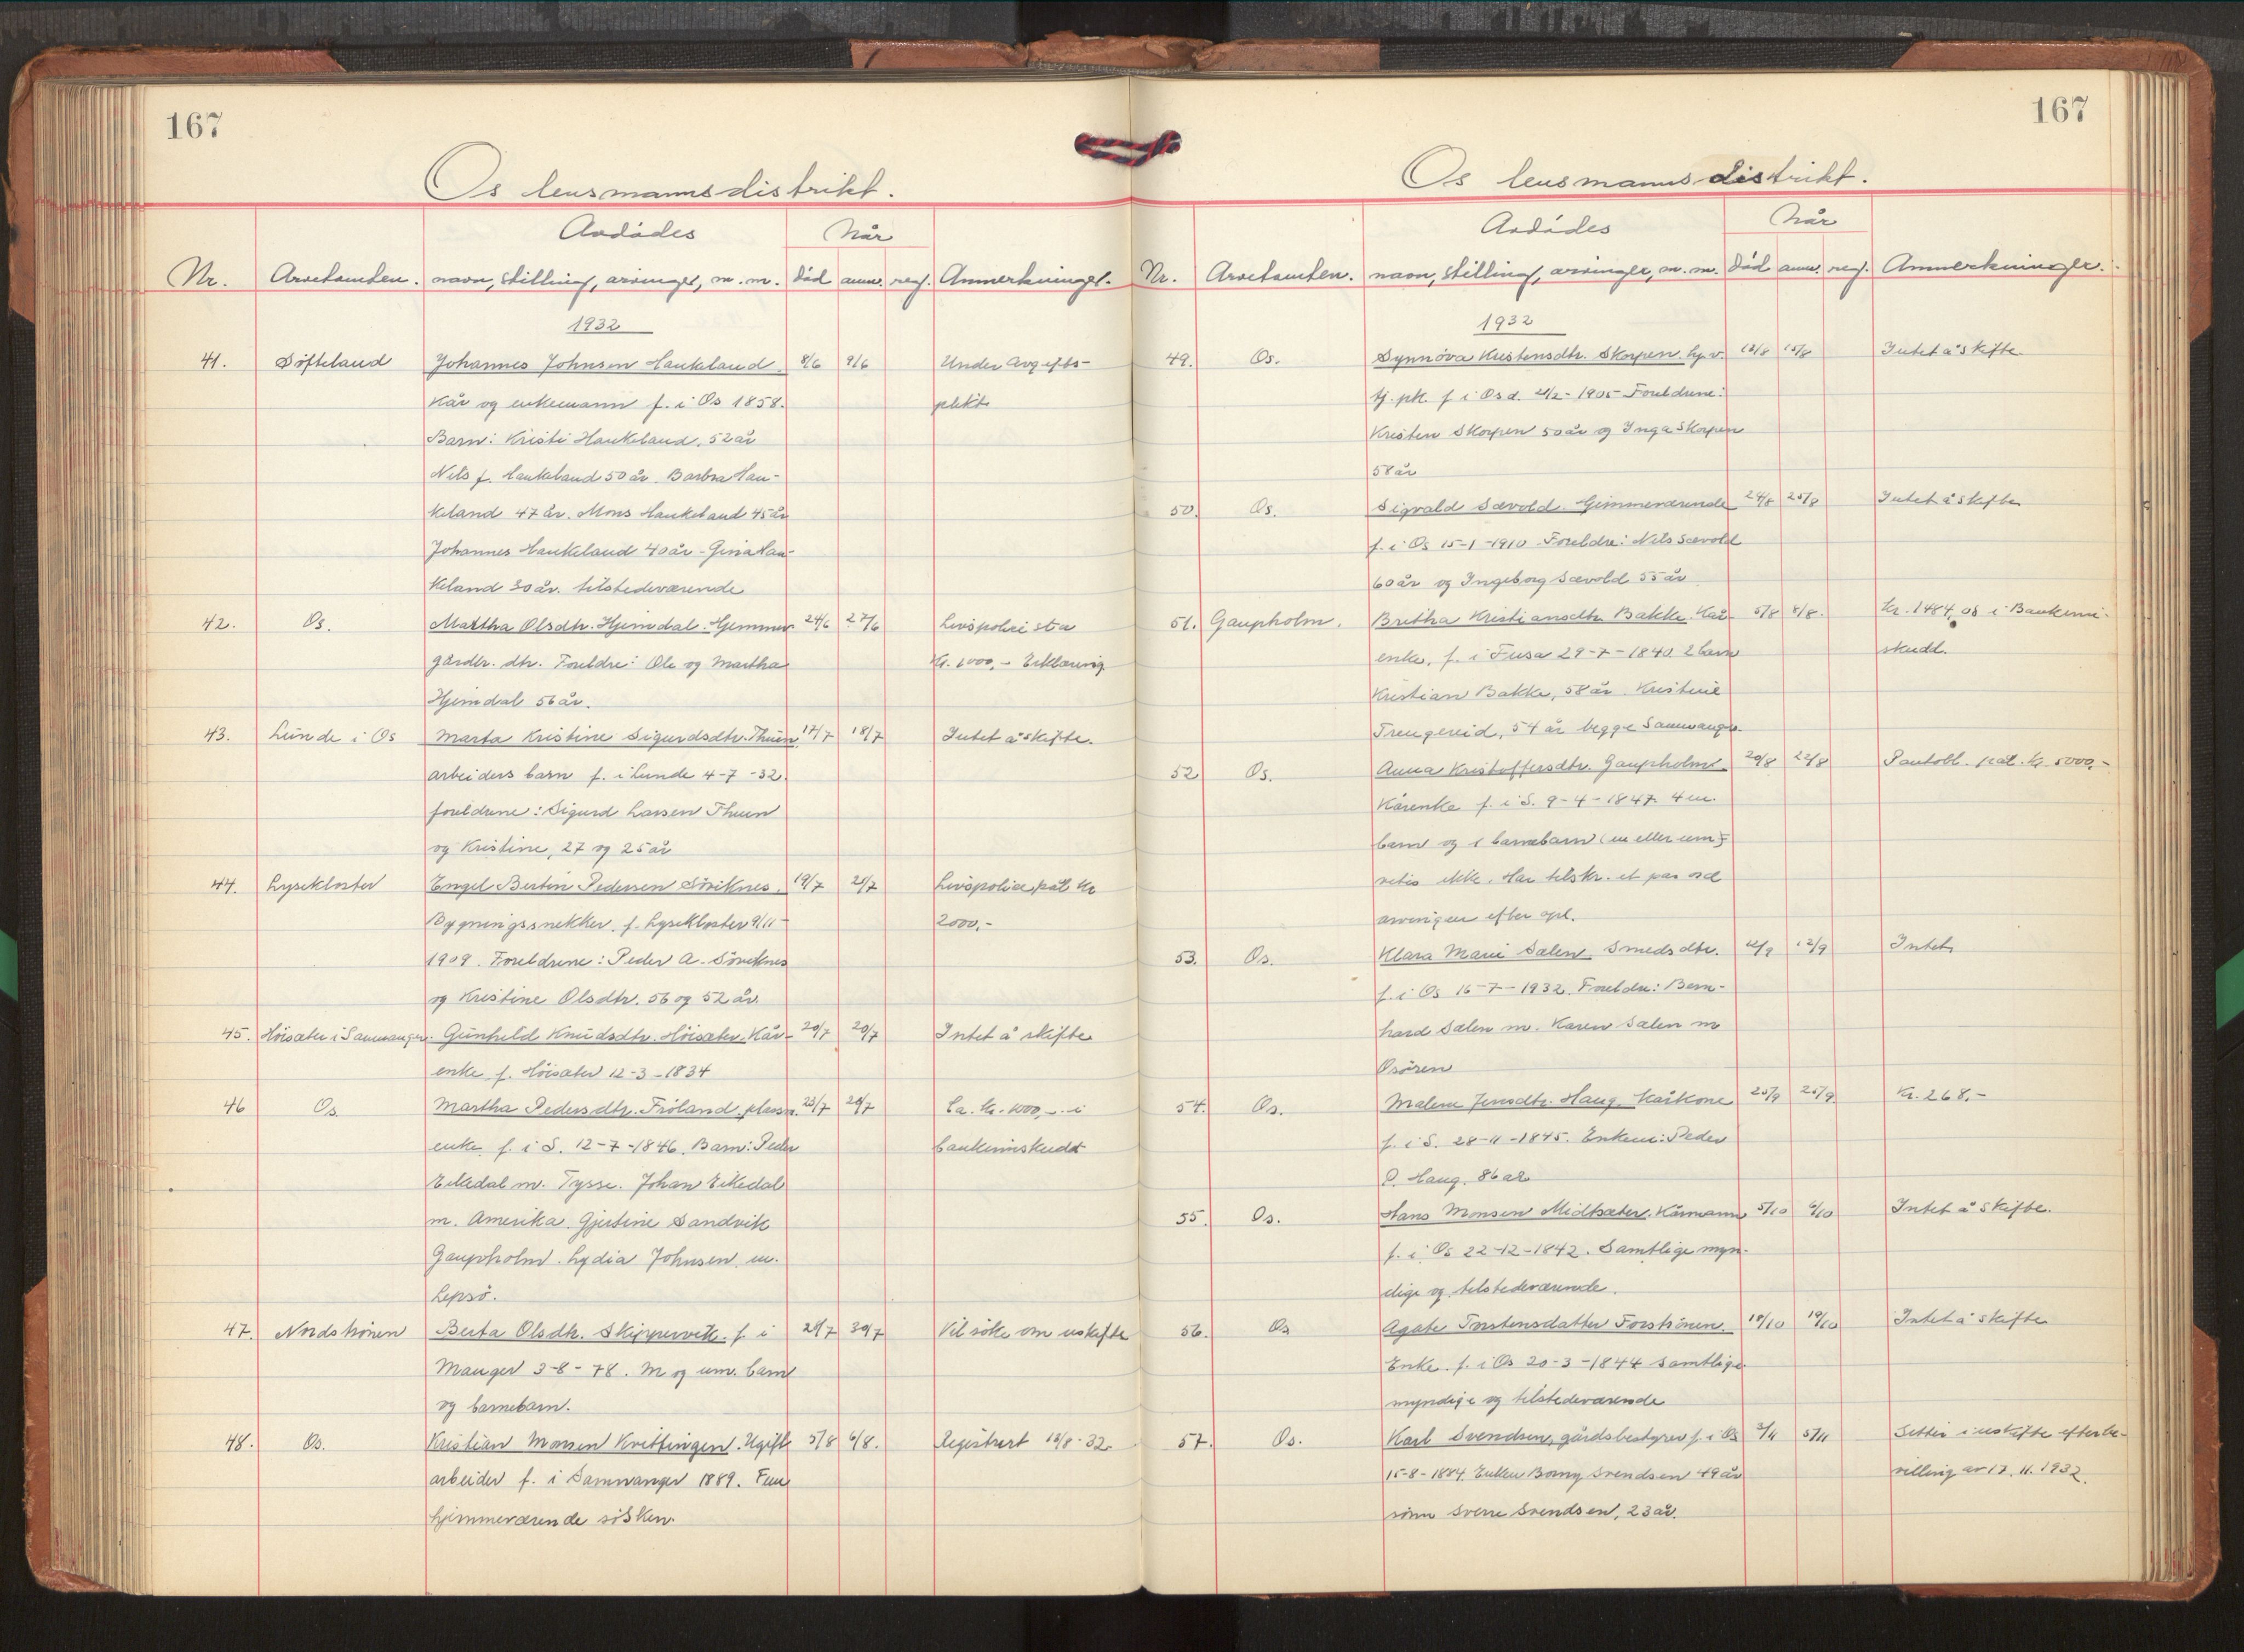 167
Os lensmannsdistrikt.
Avdødes
Når
Nr. Arvetomten. navn, stilling, arvinger, m. m. død anm. reg. Anmerkninger.
1932
41. Söfteland Johannes Johnsen Haukeland. 8/6 9/6 Under avgifts-
Kår og enkemann f. i Os 1858. plikt
Barn: Kristi Haukeland, 52 år
Nils J. Haukeland 50 år. Barbra Hau-
keland 47 år. Mons Haukeland 45 år
Johannes Haukeland 40 år - Gina Hau-
keland 30 år. tilstedeværende
42. Os. Martha Olsdtr. Hjemdal. Hjemmev. 24/6 27/6 Livspolise sta
gårdbr. dtr. Foreldre: Ole og Martha Kr. 1000,- Erklæring
Hjemdal 56 år.
43. Lunde i Os Marta Kristine Sigurdsdtr. Thuen 17/7 18/7 Intet å skifte.
arbeiders barn f. i Lunde 4-7-32.
foreldrene: Sigurd Larsen Thuen
og Kristine, 27 og 25 år
44. Lysekloster Engel Bertin Pedersen Söviknes. 19/7 21/7 Livspolise pål. kr
Bygningssnekker. f. Lysekloster 9/11- 2000,-
1909. Foreldrene: Peder A. Söviknes
og Kristine Olsdtr. 56 og 52 år.
45. Höisæter i Samnanger. Gunhild Knudsdtr. Höisæter. Kår- 20/7 20/7 Intet å skifte
enke f. Höisæter 12-3-1834
46 Os. Martha Pedersdtr. Fröland plassm. 23/7 26/7 Ca. kr. 1000,- i
enke. f. i S. 12-7-1846. Barn: Peder bankinnskudd
Eikedal m. Tysse. Johan Eikedal
m. Amerika. Gjertine Sandvik
Gaupholm. Lydia Johnsen m.
Lepsö.
47. Nordströnen Berta Olsdtr. Skippervik. f. i 29/7 30/7 Vil söke om uskifte
Manger 3-8-78. M og um. barn
og barnebarn.
48. Os. Kristian Monsen Kvitfingen. Ugift 5/8 6/8. Registrert 12/8-32.
arbeider f. i Samnanger 1889. Fem
hjemmeværende sösken.
167
Os lensmannsdistrikt.
Avdødes
Når
Nr. Arvetomten. navn, stilling, arvinger, m. m. Död anm. reg. Anmerkninger.
1932
49. Os. Synnöva Kristensdtr. Skorpen. hj. v. 13/8 15/8 Intet å skifte.
tj. pk. f i Os d. 21/2-1905 Foreldrene:
Kristen Skorpen 50 år og Inga Skorpen
58 år
50. Os. Sigvald Sævold. Hjemmeværende 24/8 25/8 Intet å skifte
f. i Os 15-1-1910 Foreldre: Nils Sævold
60 år og Ingeborg Sævold 55 år
51. Gaupholm. Britha Kristiansdtr Bakke. Kår- 5/8 8/8. Kr. 1484,08 i Bankinn-
enke, f. i Fusa 29-7-1840. 2 barn skudd.
Kristian Bakke, 58 år. Kristine
Trengereid, 54 år begge Samnanger.
52 Os. Anna Kristoffersdtr. Gaupholm 20/8 22/8 Pantobl. pål. Kr. 5000,-
Kårenke f. i S. 9-4-1847. 4 m.
barn og 1 barnebarn (m eller um)
vites ikke. Har tilskr. et par ord
arvingen efter opl.
53. Os. Klara Marie Salen Smedsdtr. 12/9 12/9 Intet
f. i Os 16-7-1932. Foreldre: Bern-
hard Salen m. Karen Salen m
Osören
54. Os. Malene Jensdtr. Haug. Kårkone 25/9 25/9 Kr. 268.-
f. i S. 28-11-1845. Enkem: Peder
O. Haug. 86 år
55. Os. Hans Monsen Midtsæter. Kårmann 5/10 6/10 Intet å skifte.
f. i Os 22-12-1842. Samtlige myn-
dige og tilstedeværende.
56. Os Agate Torstensdatter Forströnen. 18/10 19/10 Intet å skifte
Enke. f. i Os 20-3-1844 Samtlige
myndige og tilstedeværende
57. Os. Karl Svendsen, gårdsbestyrer f. i Os 3/11 5/11 Sitter i uskifte efter be-
15-8-1884. Enken Borny Svendsen 49 år villing av 17.11.1932.
sönn Sverre Svendsen, 23 år.